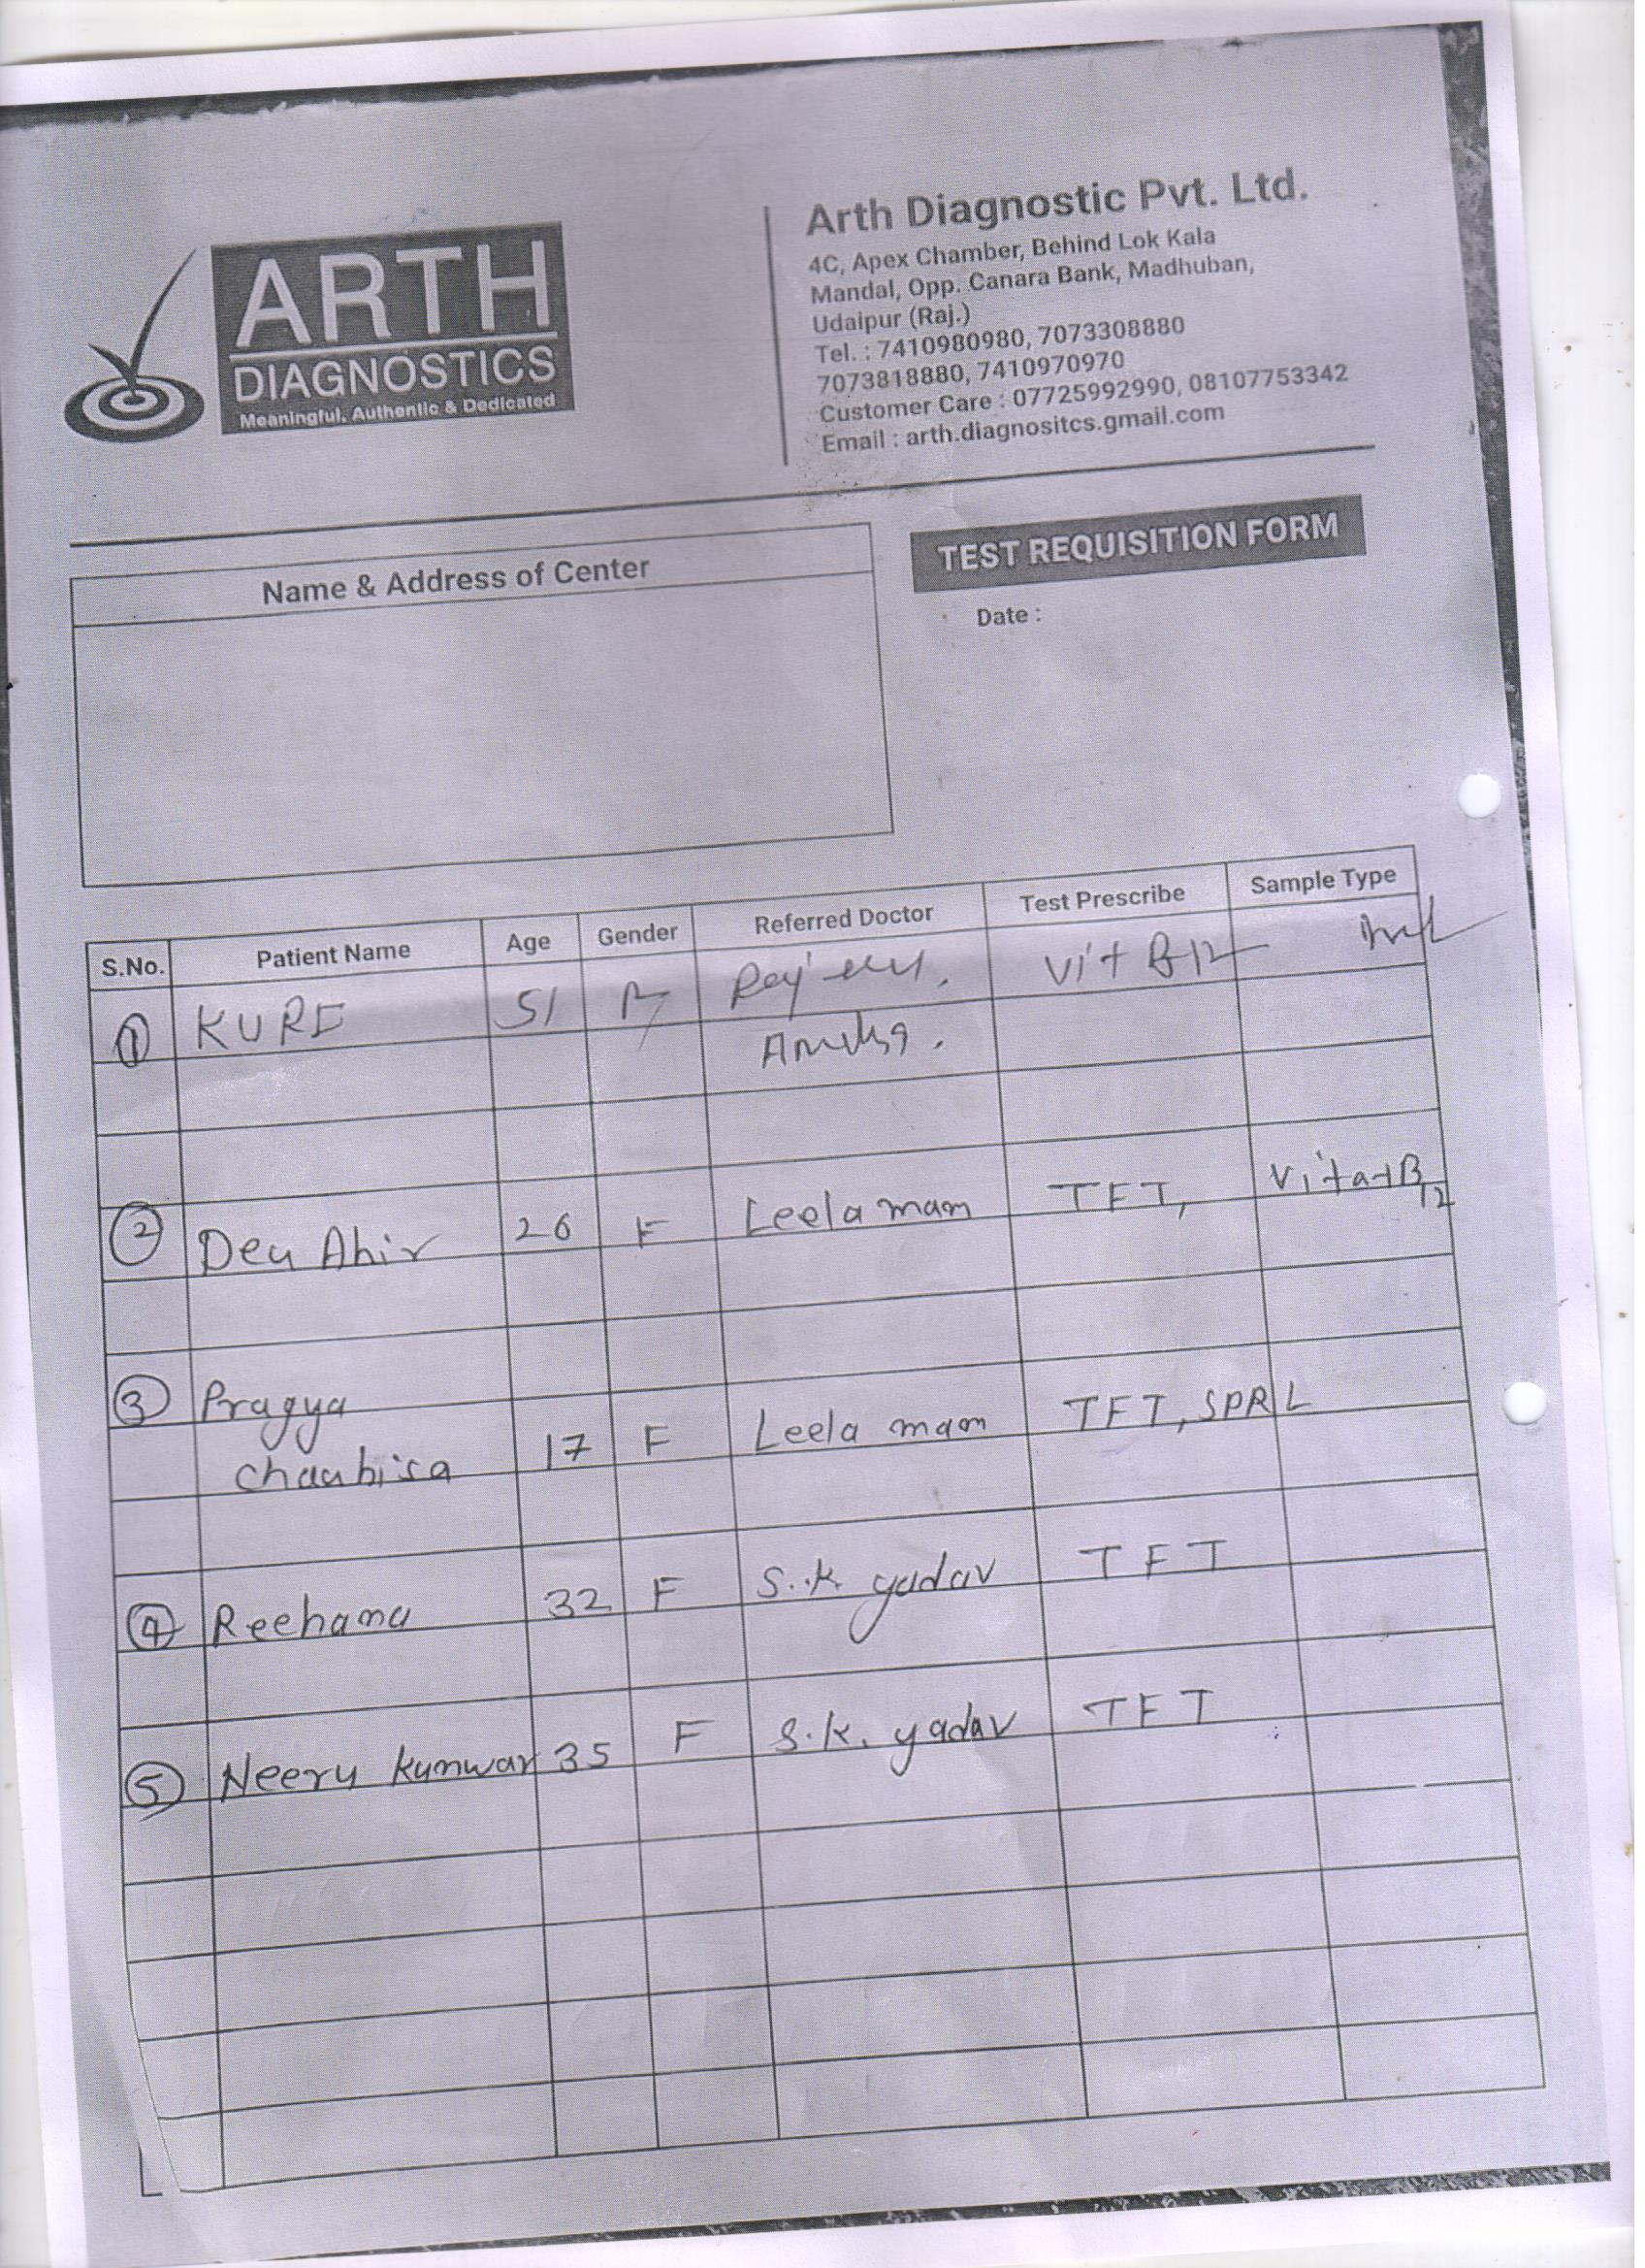 ARTH
DIAGNOSTICS
Meaningful, Authentic & Dedicated
Arth Diagnostic Pvt. Ltd.
4C, Apex Chamber, Behind Lok Kala
Mandal, Opp. Canara Bank, Madhuban,
Udaipur (Raj.)
Tel. : 7410980980, 7073308880
7073818880, 7410970970
Customer Care : 07725992990, 08107753342
Email : arth.diagnositcs.gmail.com
Name & Address of Center
TEST REQUISITION FORM
Date :
S.No. Patient Name Age Gender Referred Doctor Test Prescribe Sample Type
1 51 Vit B12
2 Ahir 26 F Leela mam TFT, Vitat B12
3 Pragya
Chaubisa 17 F Leela mam TFT, SPRL
4 Reehana 32 F S.K. yadav TFT
5 Neeru Kunwar 35 F S.K. yadav TFT